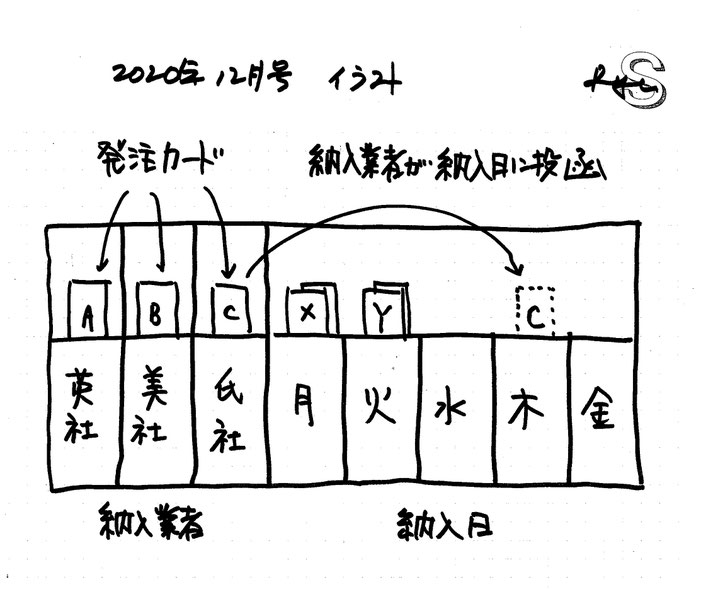 2020年12月号 イラスト
S
発注カード
納入業者が納入日に投函
A B C X Y C
英社 美社 氏社 月 火 水 木 金
納入業者 納入日